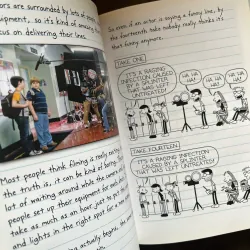 ors are surrounded by lots of people
equipment, so it's kind of amazing
cus on delivering their lines.
Most people think filming is really exciting
the truth is, it can be kind of boring.
lot of waiting around while the
people set up their equipment for each
take as much as an hour just to get the
and lights in the right spot for a new
actually begins, the
So even if an actor is saying a funny line, by
the fourteenth take nobody really thinks it's
that funny anymore.
TAKE ONE
IT'S A RAGING
INFECTION CAUSED
BY A SPLINTER
THAT WAS LEFT
UNTREATED!
HA HA
HA!
HA HA
HA!
HA HA
HA!
TAKE FOURTEEN
IT'S A RAGING
INFECTION CAUSED
BY A SPLINTER
THAT WAS LEFT
UNTREATED!